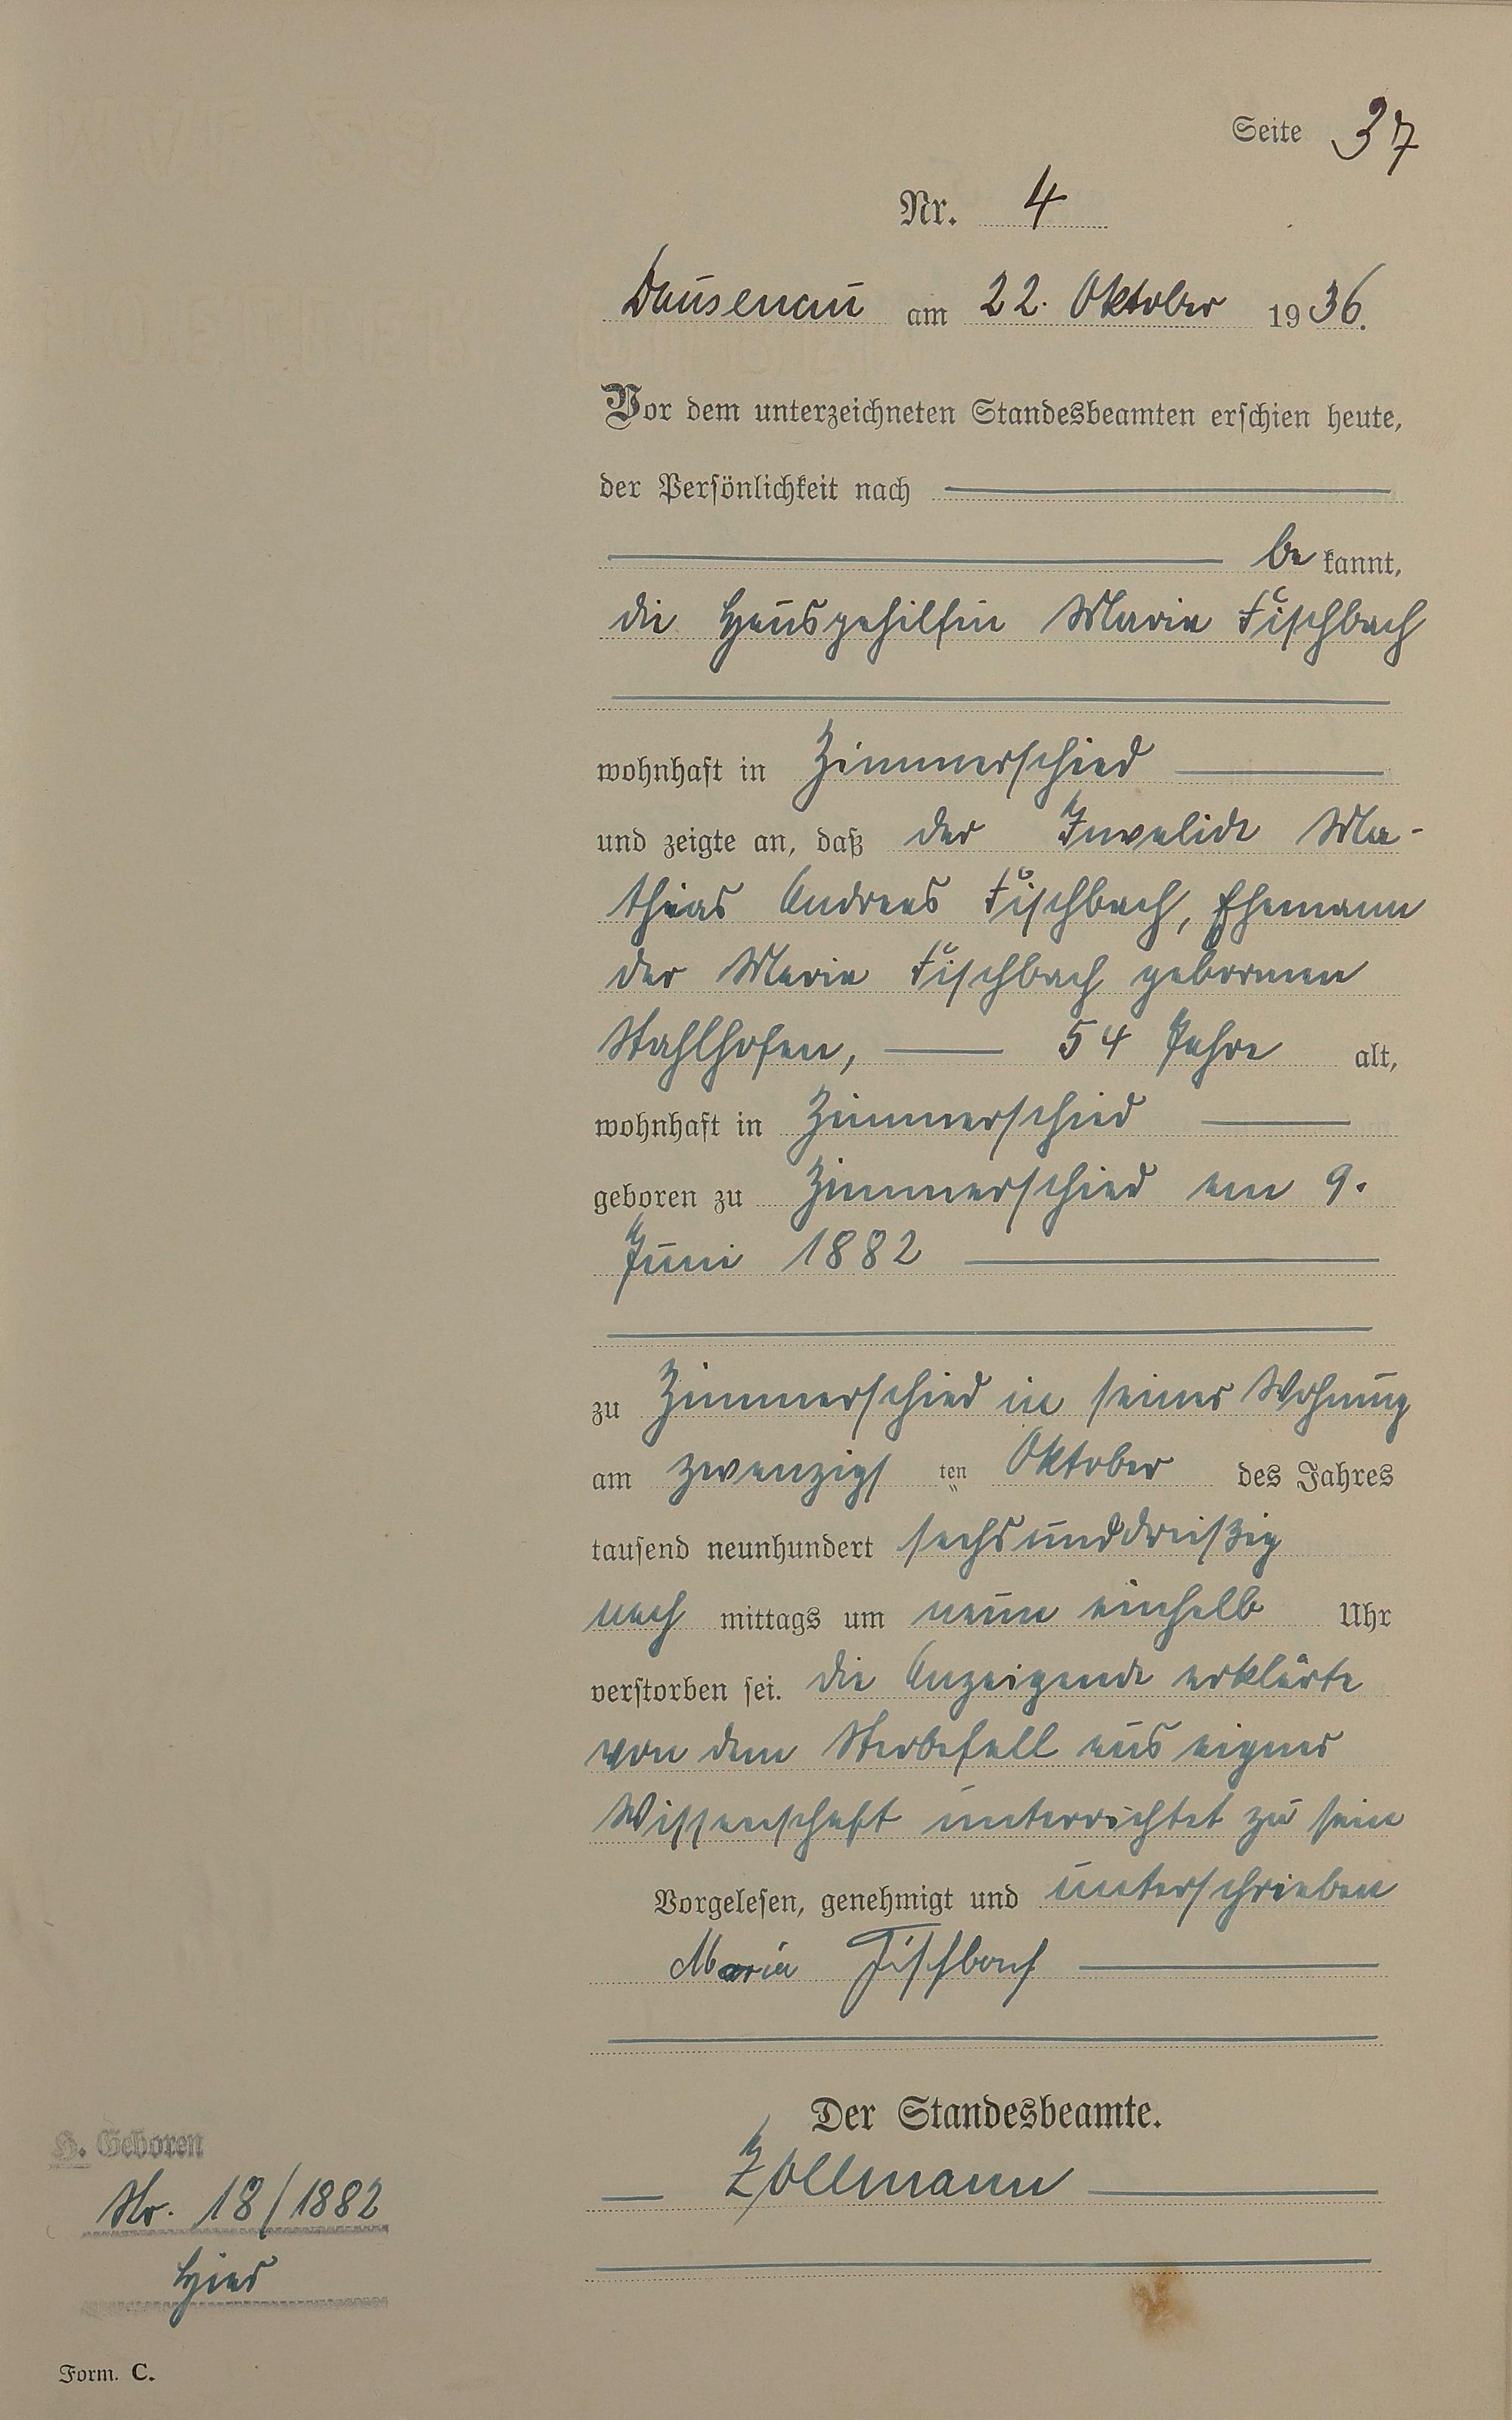 Seite 37
Nr. 4
Dausenau am 22. Oktober 1936.
Vor dem unterzeichneten Standesbeamten erschien heute,
der Persönlichkeit nach
be kannt,
die Hausgehilfin Maria Fischbach
wohnhaft in Zimmerschied
und zeigte an, daß der Invalide Ma-
thias Andreas Fischbach, Ehemann
der Maria Fischbach geborenen
Stahlhofen, 54 Jahre alt,
wohnhaft in Zimmerschied
geboren zu Zimmerschied am 9.
Juni 1882
zu Zimmerschied in seiner Wohnung
am zwanzigs ten Oktober des Jahres
tausend neunhundert sechsunddreißig
nach mittags um neun einhalb Uhr
verstorben sei. Die Anzeigende erklärte
von dem Sterbefall aus eigner
Wissenschaft unterrichtet zu sein
Vorgelesen, genehmigt und unterschrieben
Maria Fischbach
Der Standesbeamte.
Zollmann
H. Geboren
Nr. 18/1882
hier
Form. C.